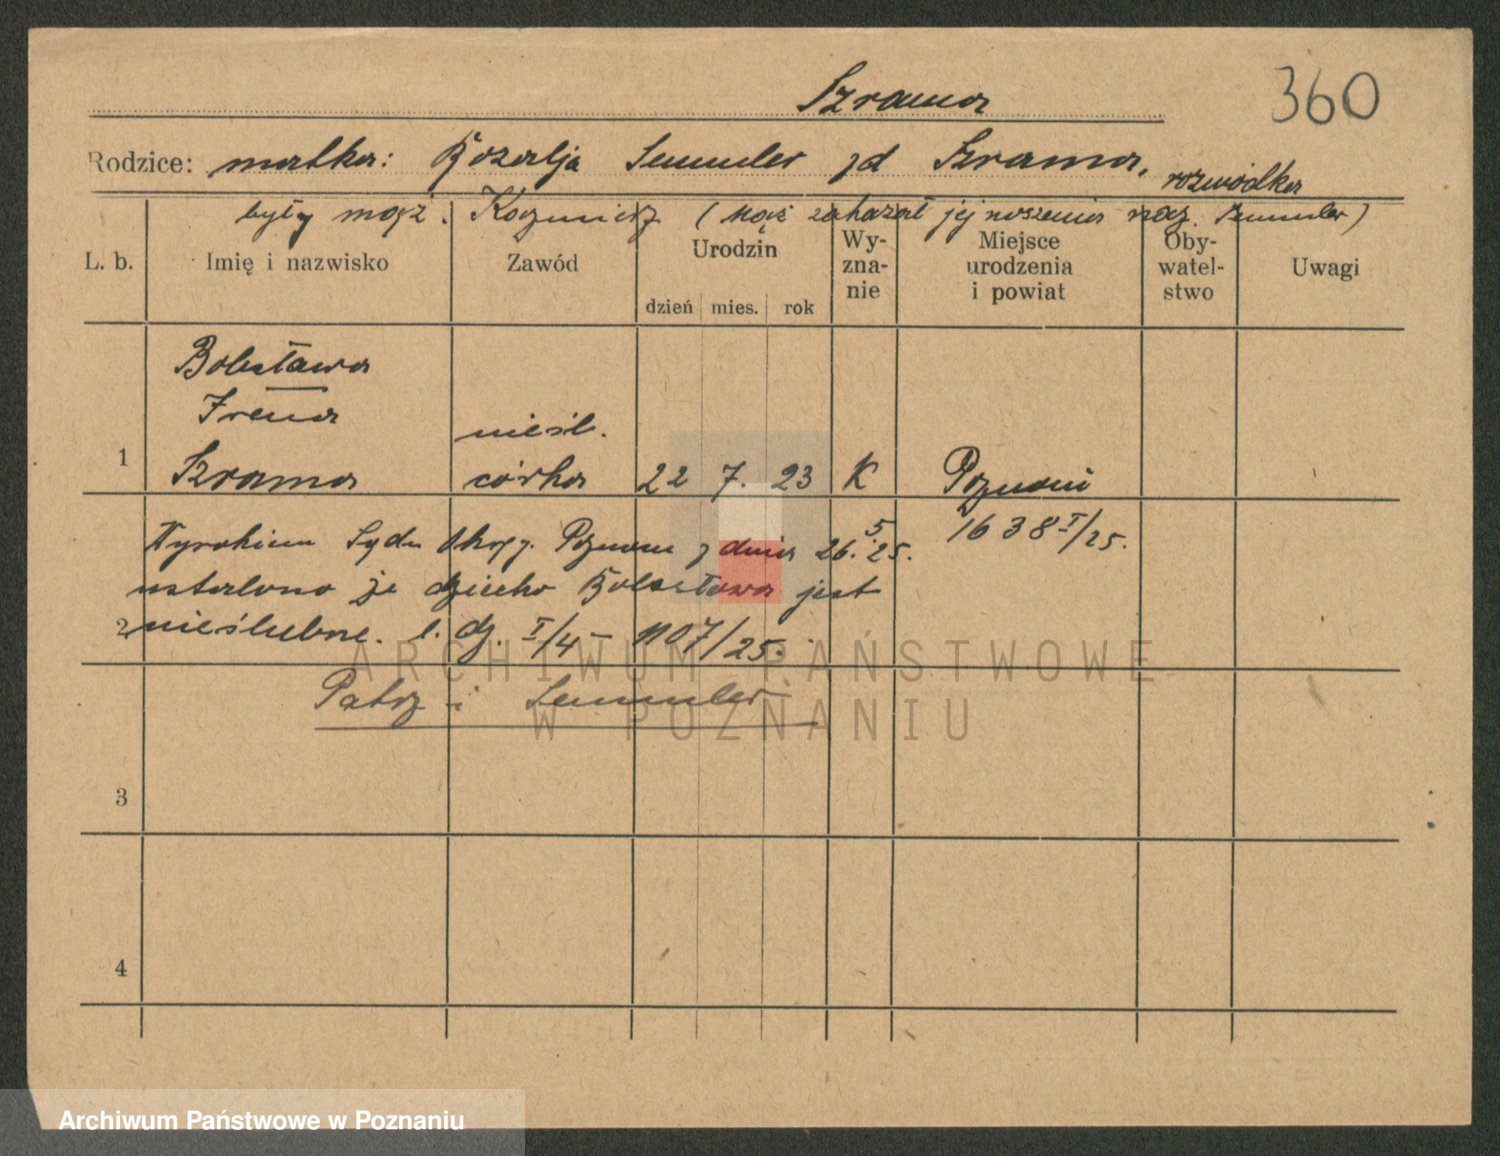 Szrama
360
Rodzice: matka: Rozalja Semmler zd Szrama, rozwódka
były mąż. Kazmierz (Mąż zakazał jej noszenia naz. Semmler)
L. b. Imię i nazwisko Zawód Urodzin Wy-zna-nie Miejsce urodzenia i powiat Oby-watel-stwo Uwagi
dzień mies. rok
Bolesława
Irena nieśl.
1 Szrama córka 22 7. 23 K Poznań
Wyrokiem Sądu Okręg. Poznań z dnia 26.5.25. 1638 I/25.
ustalono że dziecko Bolesława jest
2 nieślubne. l. dz. I/4 - 1107/25.
Patrz i Semmler
3
4
ARCHIWUM PAŃSTWOWE
W POZNANIU
Archiwum Państwowe w Poznaniu